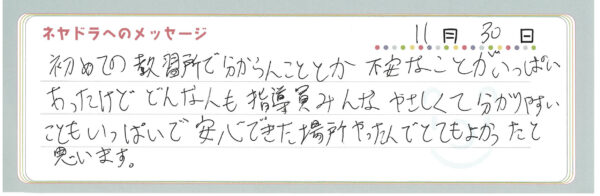 ネヤドラへのメッセージ
11月30日
初めての教習所で分からんこととか不安なことがいっぱい
あったけど どんな人も指導員みんなやさしくて分かりやすい
こともいっぱいで安心できた場所やったんでとてもよかったと
思います。